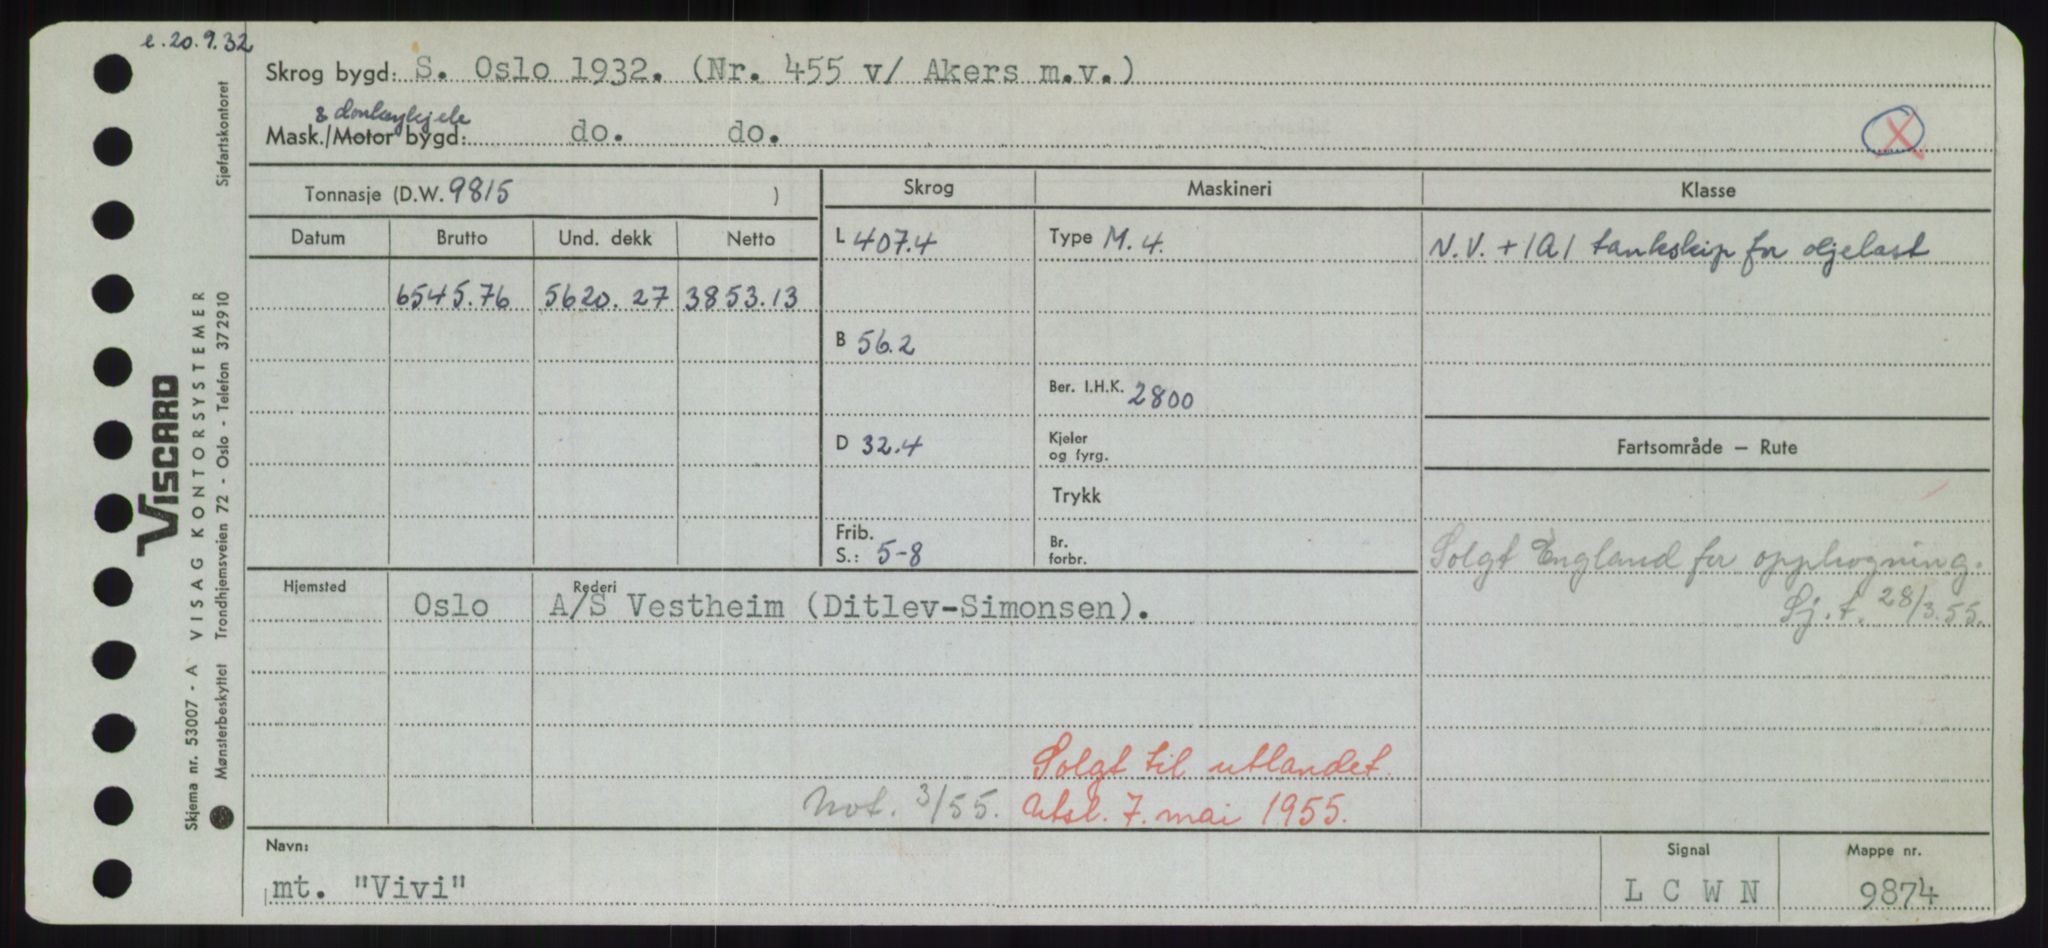 e. 20.9.32
Skrog bygd: S. Oslo 1932. (Nr. 455 v/ Akers m.v.)
& donkeykjele
Mask./Motor bygd: do. do.
X
Tonnasje (D.W. 9815 )
Skrog
Maskineri
Klasse
Datum
Brutto
Und. dekk
Netto
L 407.4
Type M. 4.
N.V. + 1A1 tankskip for oljelast
6545.76
5620.27
3853.13
B 56.2
Ber. I.H.K. 2800
D 32.4
Kjeler
og fyrg.
Fartsområde – Rute
Trykk
Frib.
S.: 5-8
Br.
forbr.
Solgt England for opphogning.
Sj. f. 28/3.55.
Hjemsted
Oslo
Rederi
A/S Vestheim (Ditlev-Simonsen).
Solgt til utlandet.
Not. 3/55. Utsl. 7. mai 1955.
Navn:
mt. "Vivi"
Signal
L C W N
Mappe nr.
9874
Sjøfartskontoret
VISCARD
Skjema nr. 53007 - A VISAG KONTORSYSTEMER
Mønsterbeskyttet Trondhjemsveien 72 - Oslo - Telefon 372910